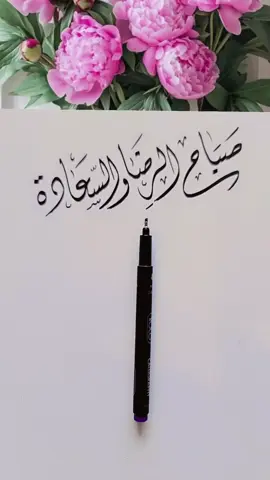 صَبَاح الرِضَا والسِّعَادة